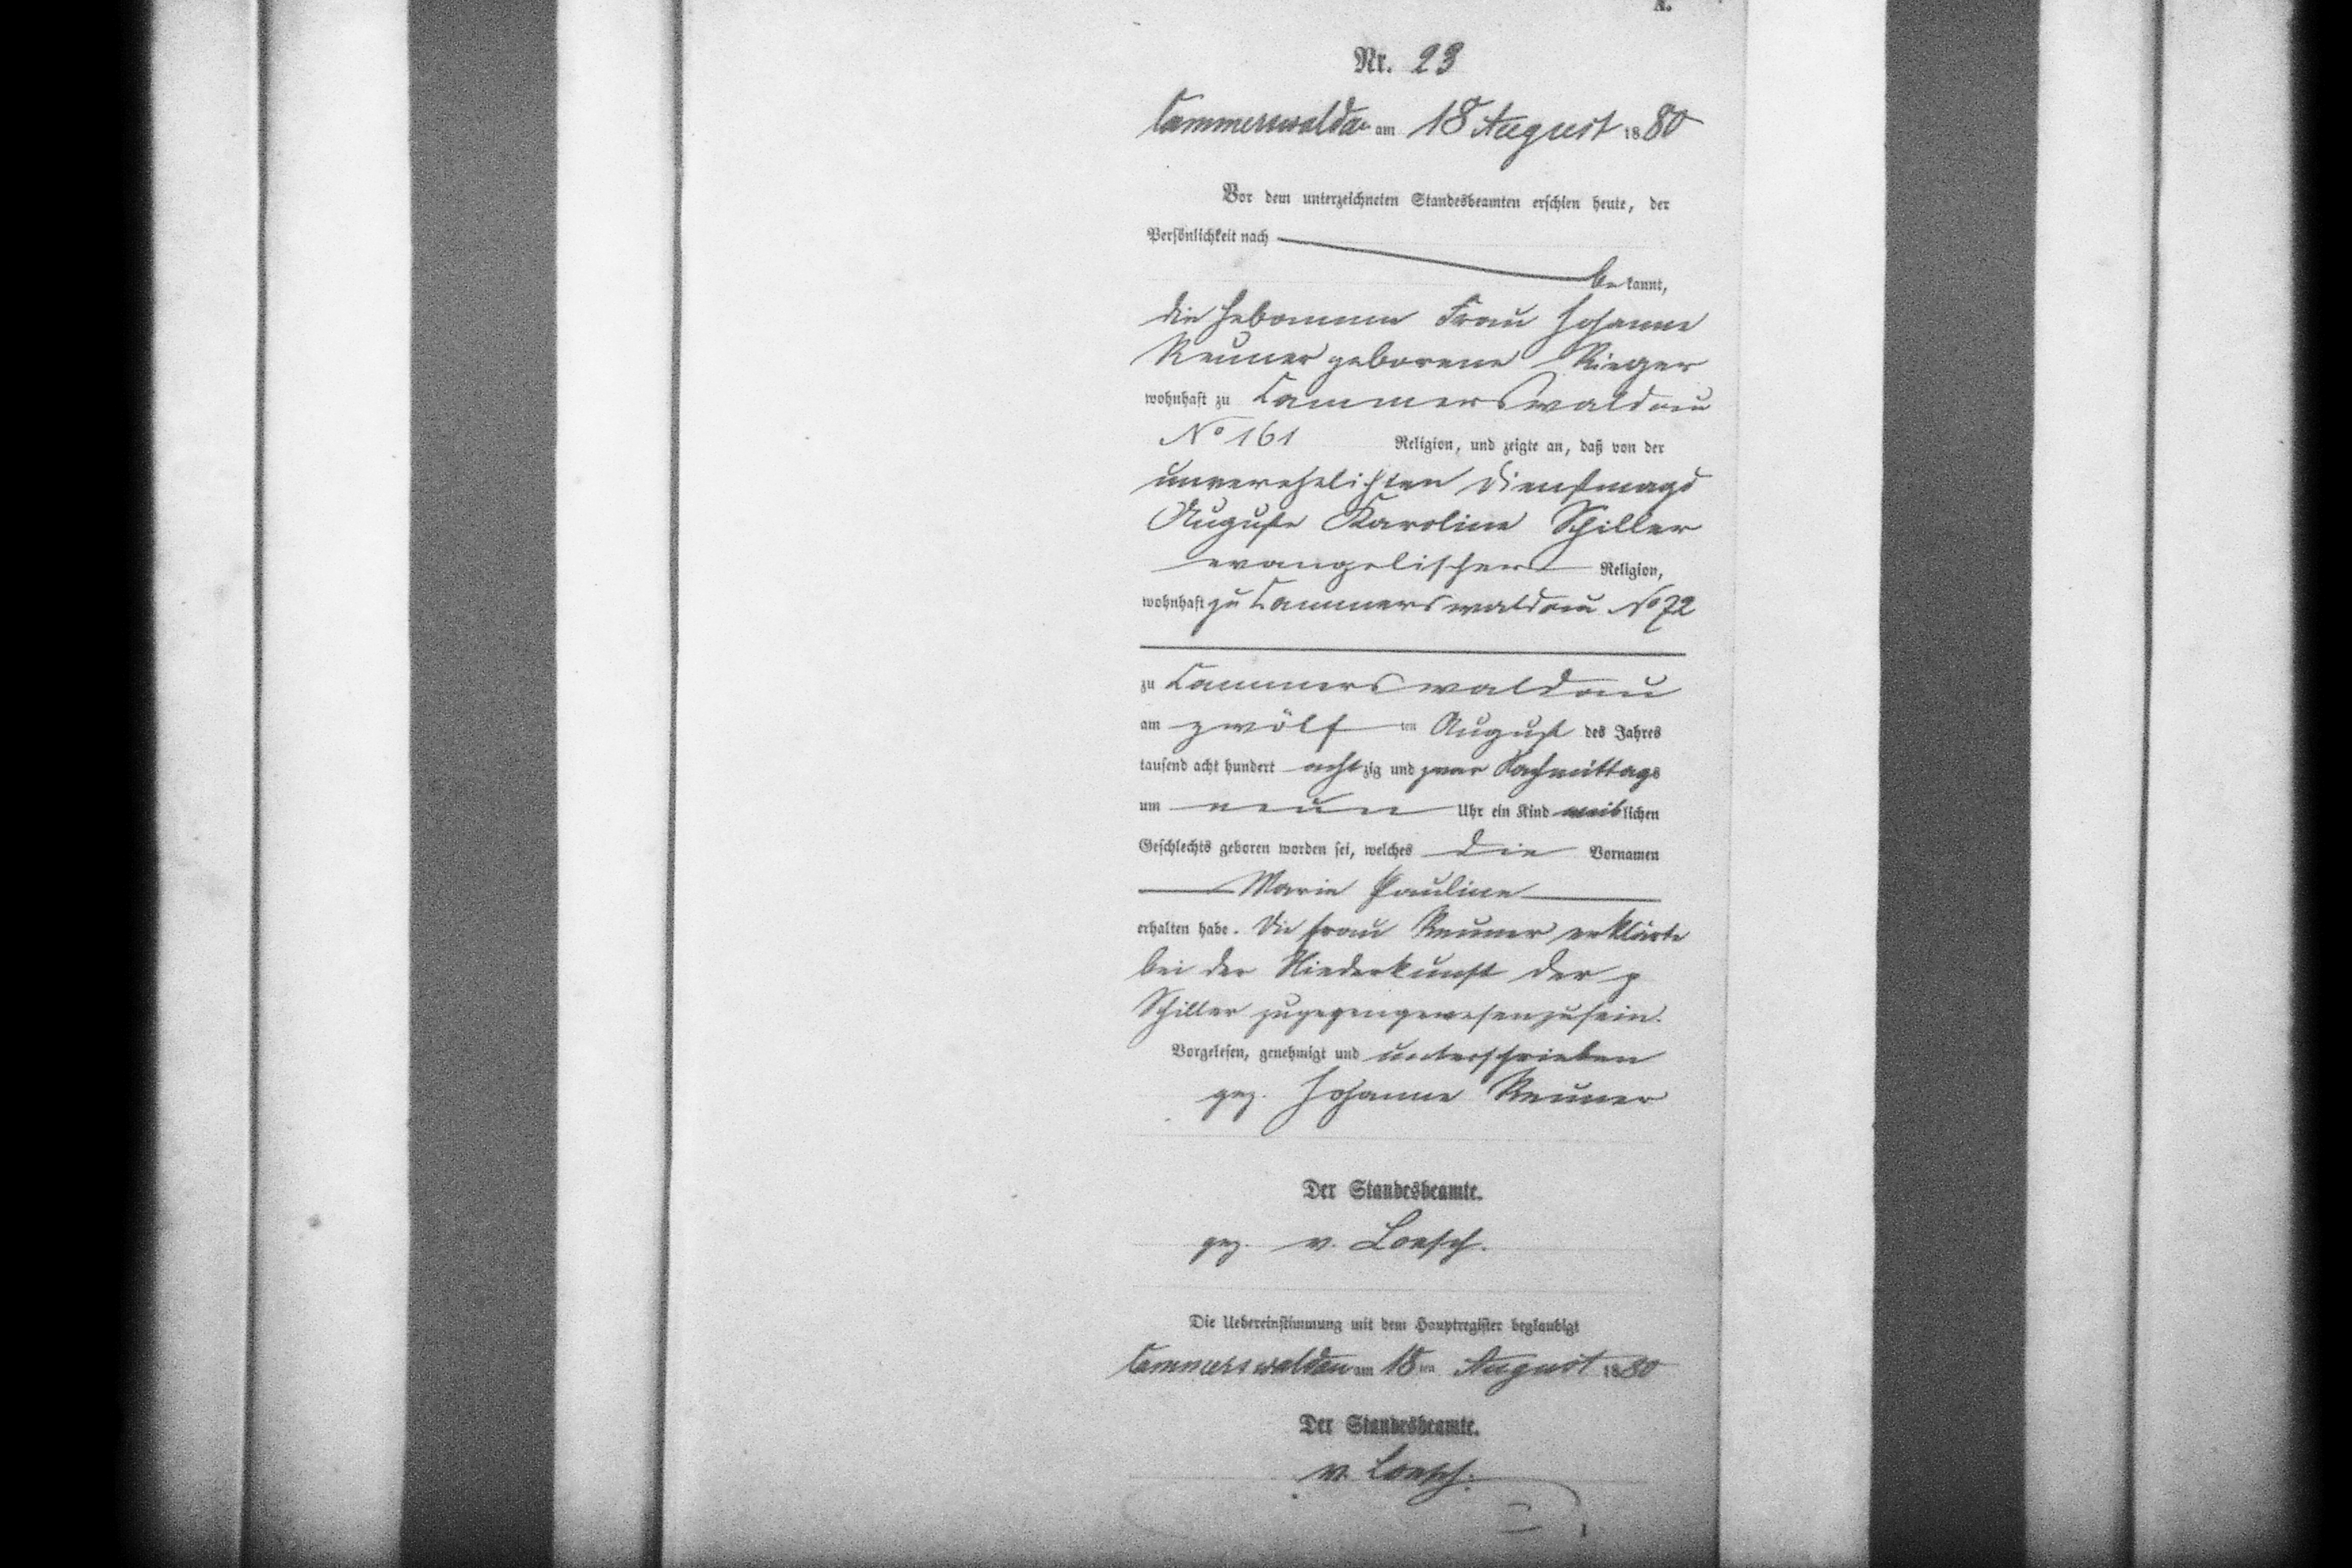 A.
Nr. 23
Cammerswaldau am 18 August 1880
Vor dem unterzeichneten Standesbeamten erschien heute, der
Persönlichkeit nach
bekannt,
die Hebamme Frau Johanne
Renner geborene Rieger
wohnhaft zu Cammerswaldau
No 161 Religion, und zeigte an, daß von der
unverehelichten Dienstmagd
Auguste Karoline Schiller
evangelischer Religion,
wohnhaft zu Cammerswaldau No 72
zu Cammerswaldau
am zwölf ten August des Jahres
tausend acht hundert achtzig und zwar Nachmittags
um neun Uhr ein Kind weiblichen
Geschlechts geboren worden sei, welches die Vornamen
Marie Pauline
erhalten habe. Die Frau Renner erklärte
bei der Niederkunft der p
Schiller zugegen gewesen zu sein.
Vorgelesen, genehmigt und unterschrieben
gez. Johanne Renner
Der Standesbeamte.
gez. v. Loesch.
Die Uebereinstimmung mit dem Hauptregister beglaubigt
Cammerswaldau am 18ten August 1880
Der Standesbeamte.
v. Loesch.